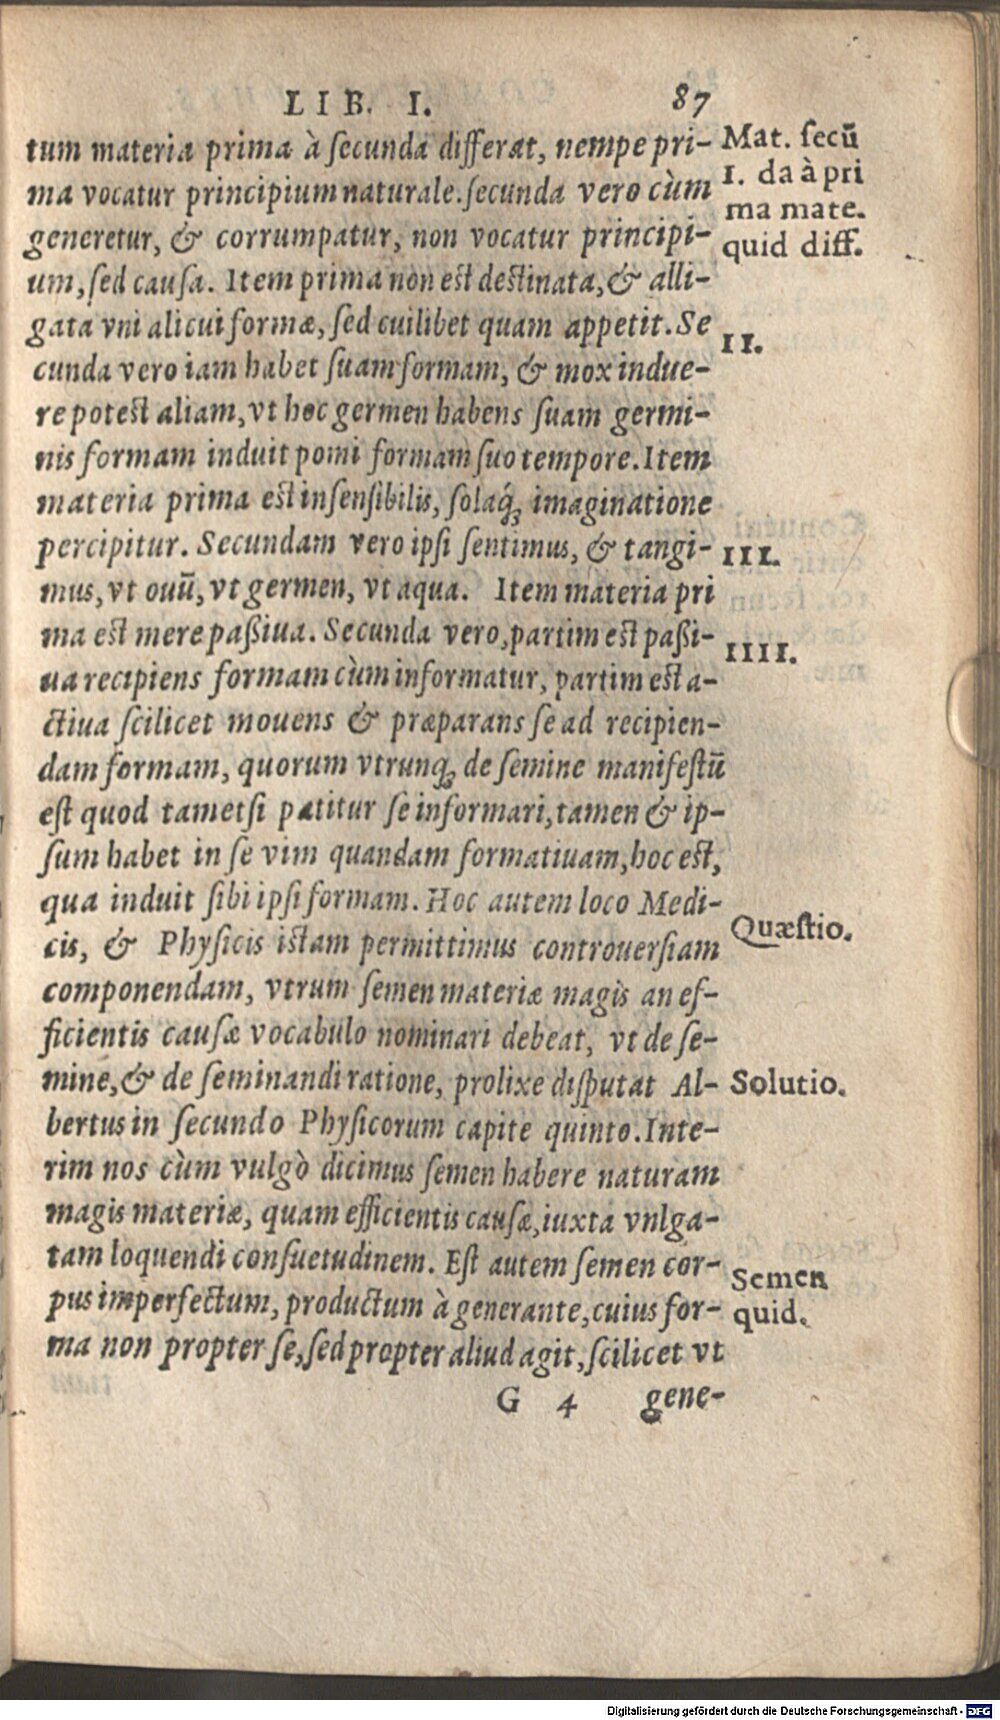 LIB. I. 87
tum materia prima à ſecunda differat, nempe pri-
ma vocatur principium naturale. ſecunda vero cùm
generetur, & corrumpatur, non vocatur principi-
um, ſed cauſa. Item prima non eſt deſtinata, & alli-
gata vni alicui formæ, ſed cuilibet quam appetit. Se
cunda vero iam habet ſuam formam, & mox indue-
re poteſt aliam, vt hoc germen habens ſuam germi-
nis formam induit pomi formam ſuo tempore. Item
materia prima eſt inſenſibilis, ſolaq́ꝫ imaginatione
percipitur. Secundam vero ipſi ſentimus, & tangi-
mus, vt ouū, vt germen, vt aqua. Item materia pri
ma eſt mere paßiua. Secunda vero, partim eſt paßi-
ua recipiens formam cùm informatur, partim eſt a-
ctiua ſcilicet mouens & præparans ſe ad recipien-
dam formam, quorum vtrunqꝫ de ſemine manifeſtū
eſt quod tametſi patitur ſe informari, tamen & ip-
ſum habet in ſe vim quandam formatiuam, hoc eſt,
qua induit ſibi ipſi formam. Hoc autem loco Medi-
cis, & Phyſicis iſtam permittimus controuerſiam
componendam, vtrum ſemen materiæ magis an ef-
ficientis cauſæ vocabulo nominari debeat, vt de ſe-
mine, & de ſeminandi ratione, prolixe diſputat Al-
bertus in ſecundo Phyſicorum capite quinto. Inte-
rim nos cùm vulgò dicimus ſemen habere naturam
magis materiæ, quam efficientis cauſæ, iuxta vnlga-
tam loquendi conſuetudinem. Eſt autem ſemen cor-
pus imperfectum, productum à generante, cuius for-
ma non propter ſe, ſed propter aliud agit, ſcilicet vt
G 4 gene-
Mat. ſecū
I. da à pri
ma mate.
quid diff.
II.
III.
IIII.
Quæſtio.
Solutio.
Semen
quid.
Digitalisierung gefördert durch die Deutsche Forschungsgemeinschaft - DFG